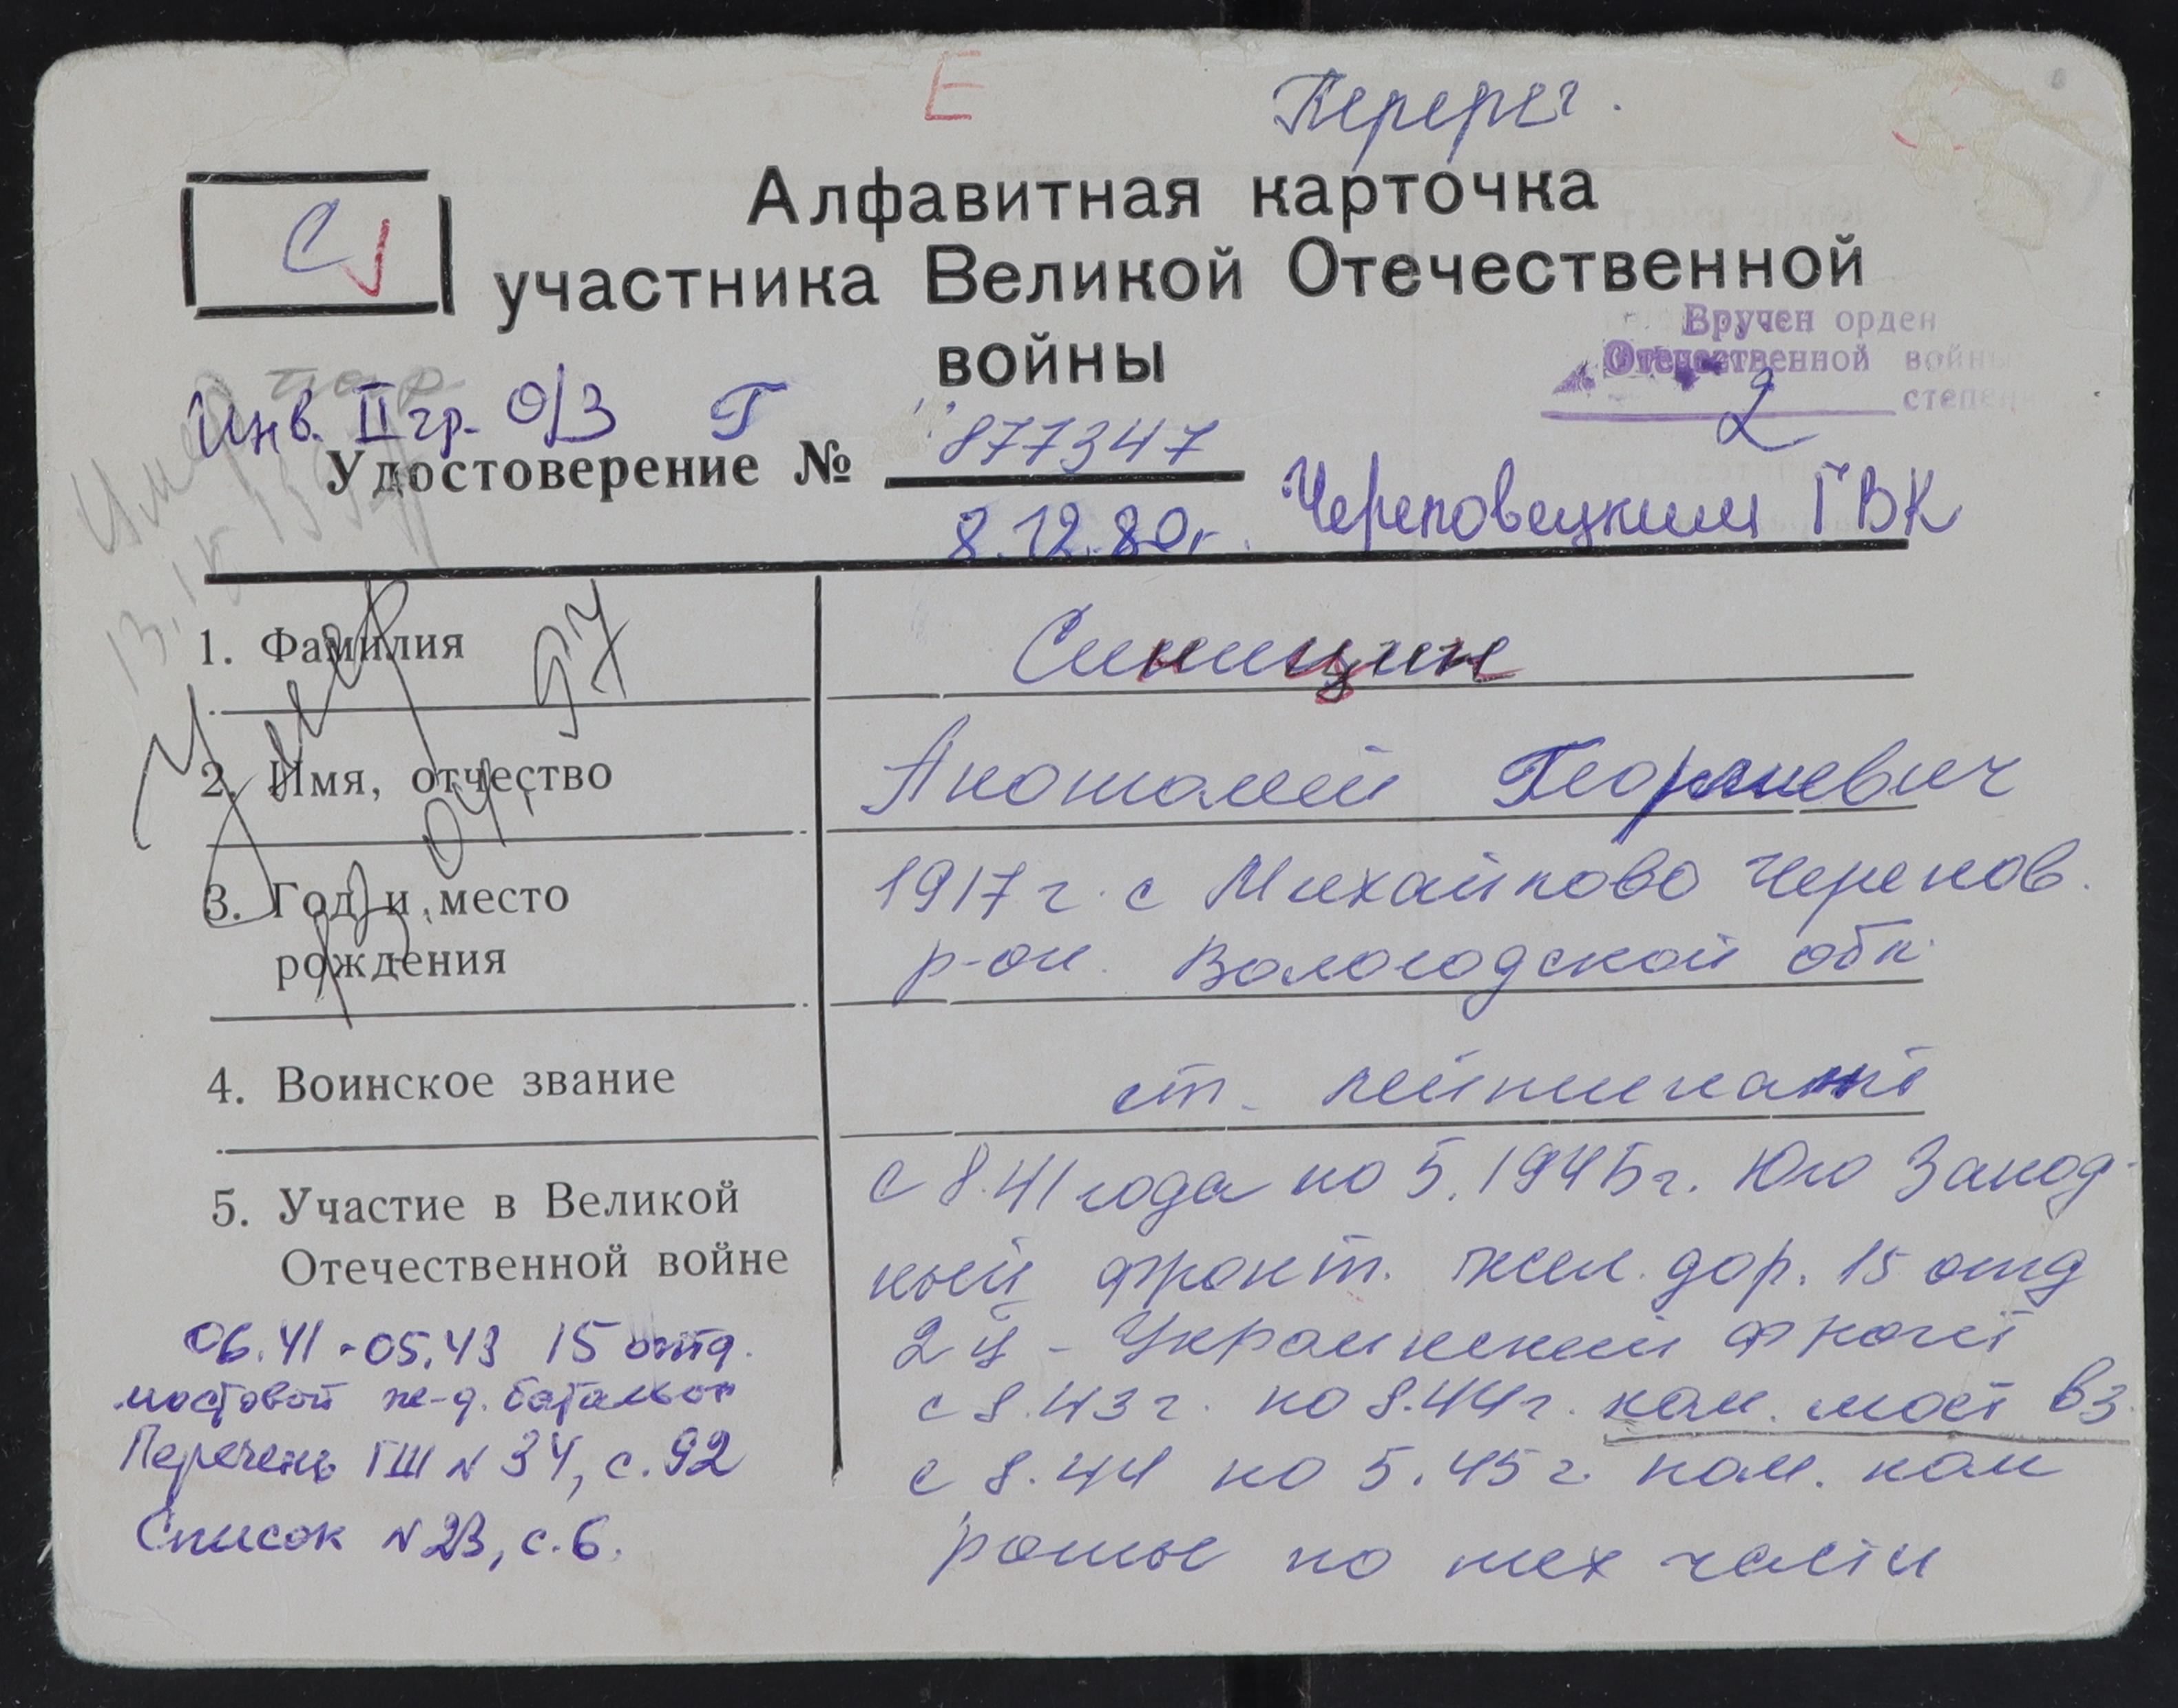 Е
Перерег.
С
Алфавитная карточка
участника Великой Отечественной
войны
Вручен орден
Отечественной войны
2 степени
Инв. II гр. О/З Г
Удостоверение № 877347
8.12.80г. Череповецким ГВК
Умер
1. Фамилия Синицин
97
2. Имя, отчество Анатолий Георгиевич
04.
3. Год и место
рождения
1917 г. с Михайлово Черепов.
р-он. Вологодской обл.
4. Воинское звание ст. лейтенант
5. Участие в Великой
Отечественной войне
с 8.41 года по 5.1945г. Юго Запад-
ный фронт. жел. дор. 15 отд
2й - Украинский фронт
с 8.43 г. по 8.44 г. ком. мост вз.
с 8.44 по 5.45 г. пом. ком
роты по тех части
06.41-05.43 15 отд.
мостовой ж-д. батальон
Перечень ГШ N 34, с. 92
Список N 23, с. 6.